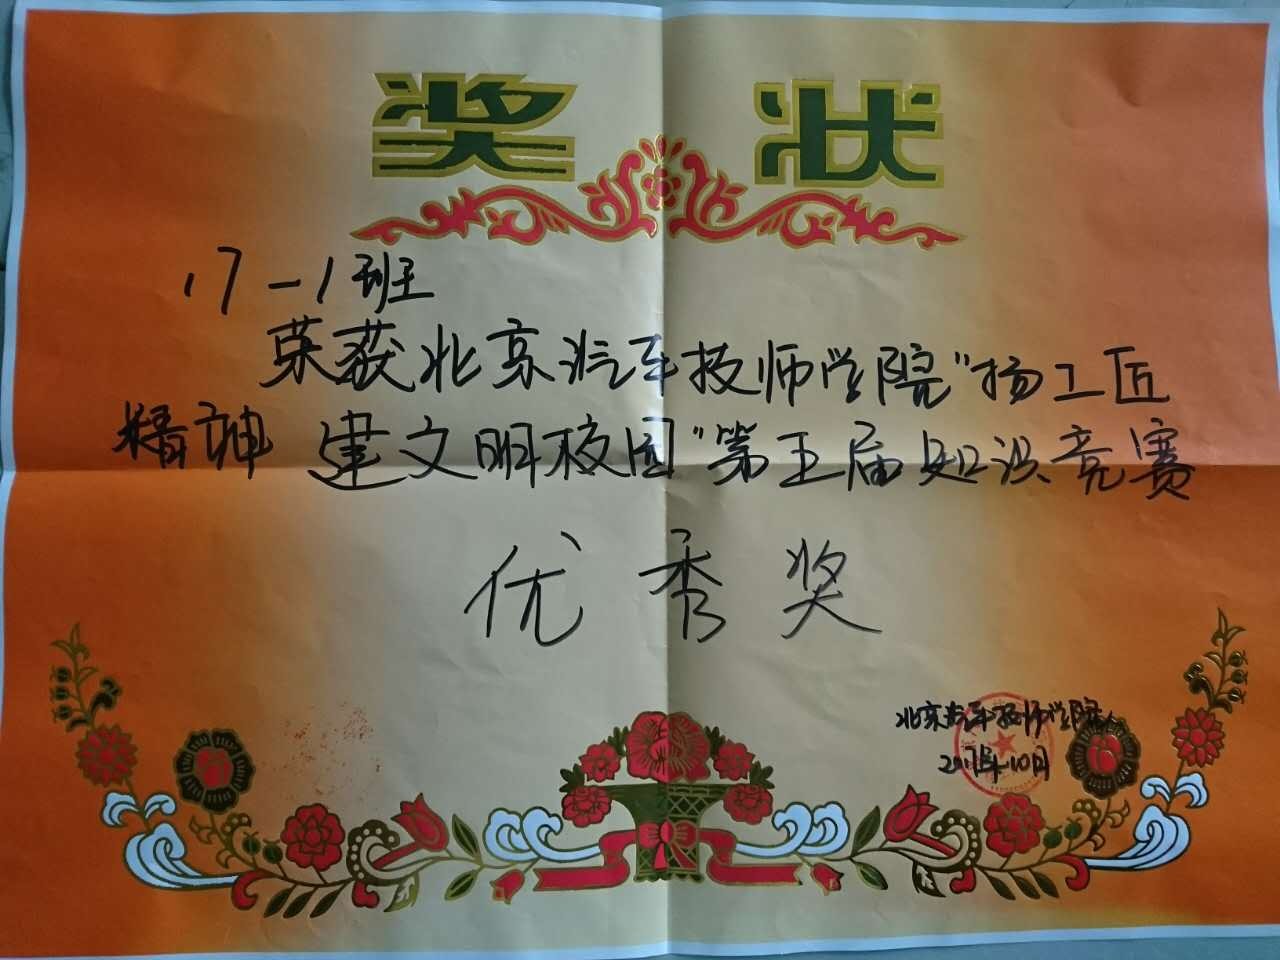 奖状
17-1班
荣获北京汽车技师学院"扬工匠
精神 建文明校园"第五届知识竞赛
优秀奖
北京汽车技师学院
2017年10月